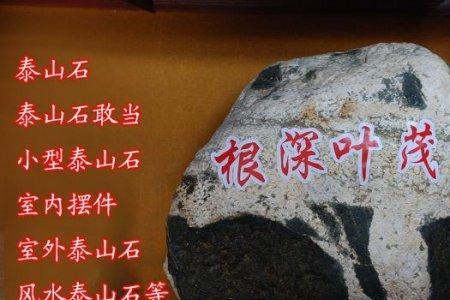 泰山石
泰山石敢当
小型泰山石
室内摆件
室外泰山石
风水泰山石等
根深叶茂